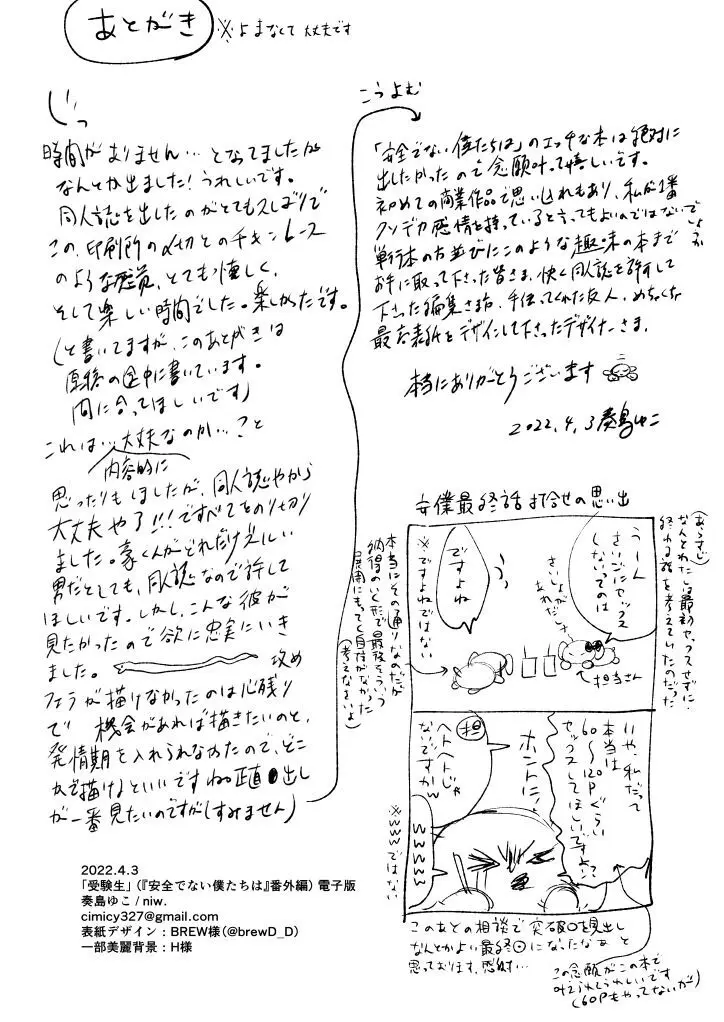 あとがき
※よまなくて大丈夫です
じっ
時間がまりません…となってましたが
なんとか出ました!うれしいです。
同人誌を出したのがとてもひさしぶりで
この、印刷所の〆切とのチキンレース
のような感覚、とても懐しく、
そして楽しい時間でした。楽しかったです。
(と書いてますが、このあとがきは
原稿の途中に書いています。
間に合ってほしいです)
これは…大丈夫なのか…?こと
内容的に
思ったりもしましたが、同人誌やから
大丈夫や了!!!ですべてをのり切り
ました。豪くんがどれだけズルい
男だとしても、同人誌なので許して
ほしいです。しかし、こんな彼が
見たかったので欲に忠実にいき
ました。
攻め
フェラが描けなかったのは心残り
で 機会があれば描きたいのと、
発情期を入れられなかたので、どこ
かで描けるといいですね。正直●出し
が一番見たいのですが(すみません)
こうよむ
「安全でない僕たちは」のエッチな本は絶対に
出したかったので念願叶って嬉しいです。
初めての商業作品で思い入れもあり、私が1番
クソデカ感情を持っていると言ってもよいのではないでしょうか
単行本の方並びにこのような趣味の本まで
お手に取って下さった皆さま、快く同人誌を許して
下さった編集さま方、手伝ってくれた友人、めちゃくちゃ
最高表紙をデザインして下さったデザイナーさま、
本当にありがとうございます
2022.4.3 奏島ゆこ
安僕最終話打合せの思い出
(あらすじ)
なんとわたしは最初ヤッてせずに
終わる話を考えていたのだった
うーん
さいごにセックス
しないってのは
さいしょが
あれだしナ
←担当さん
うっ
ですよね
※ですよねではない
本当にその通りなのだが
納得のいく形で最後そういう
展開にもってく自信がなかった
(考えなさいよ)
いや、私だって
本当は
60〜120Pぐらい
セックスしてほしいですよ?
ホントに!
担
ヘトヘトじゃ
ないですかw
wwwww
※wwwではない
このあとの相談で突破口を見出し
なんとかよい最終回になったなあと
思っております。感謝…
この念願がこの本で
叶えられてうれしいです
(60Pもやってないが)
2022.4.3
「受験生」(『安全でない僕たちは』番外編) 電子版
奏島ゆこ / niw.
cimicy327@gmail.com
表紙デザイン:BREW様(@brewD_D)
一部美麗背景:H様